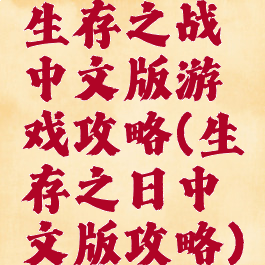 生存之战
中文版游
戏攻略(生
存之日中
文版攻略)